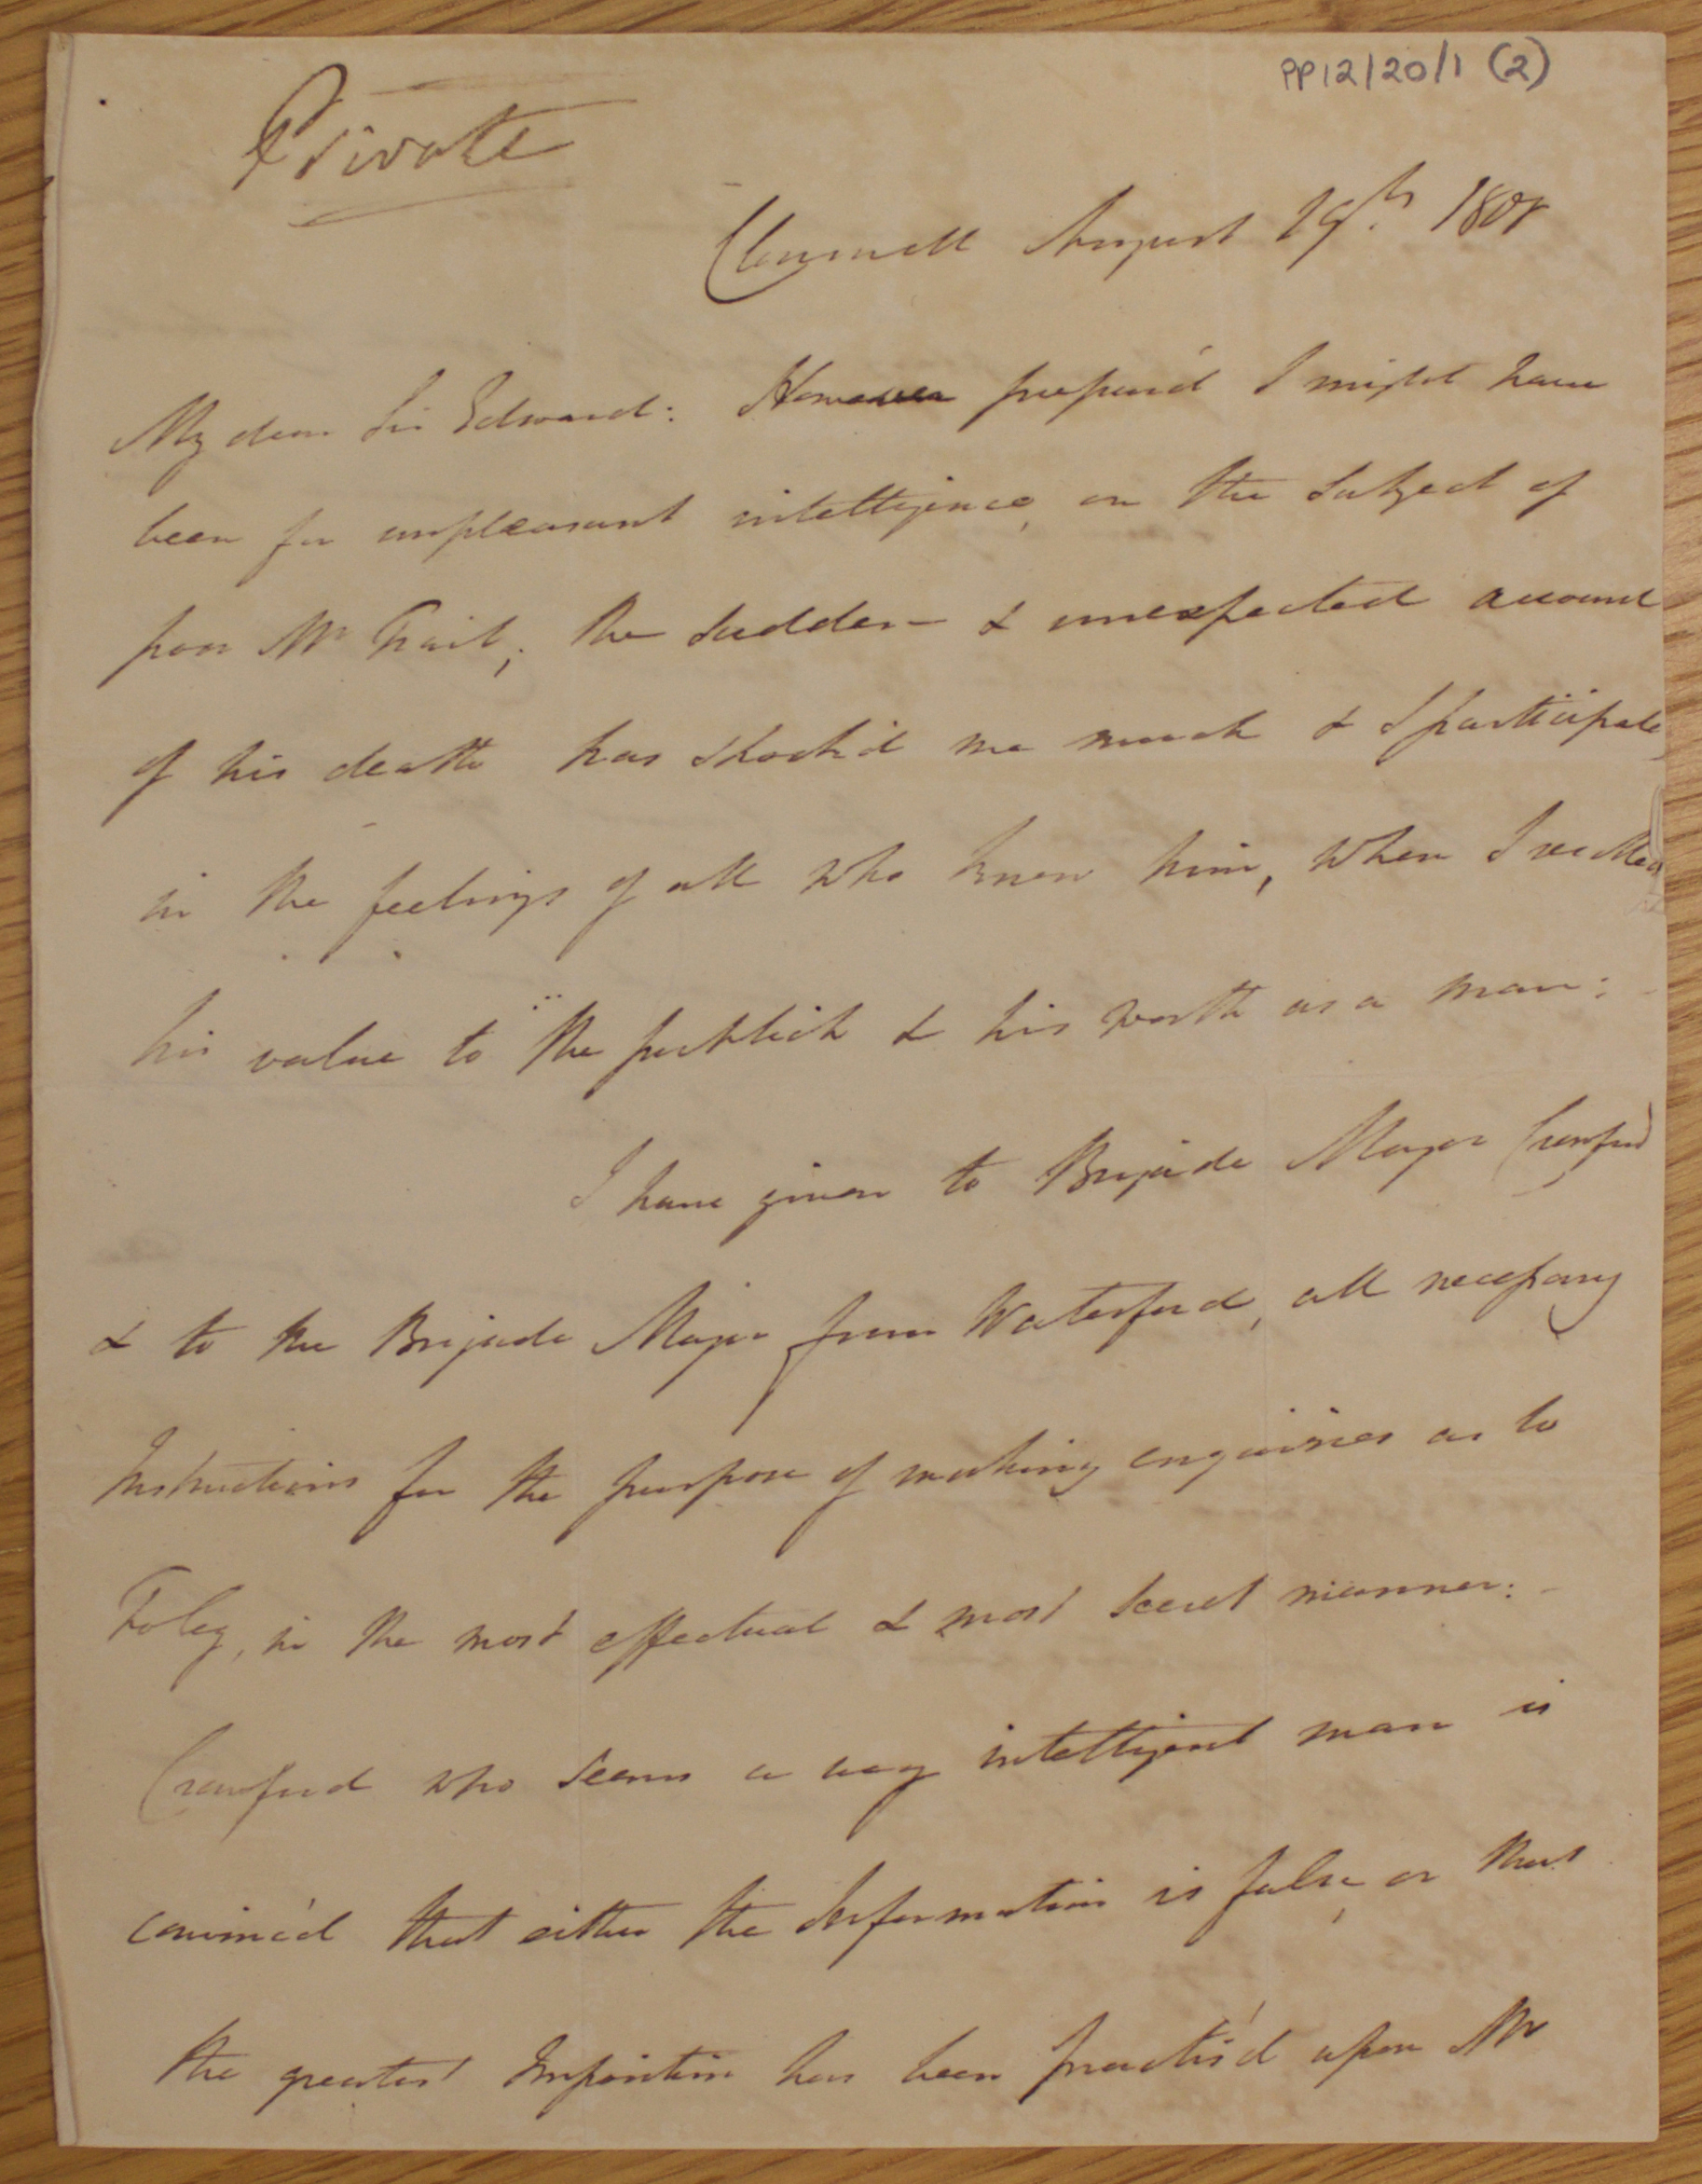 PP12/20/1 (2)
Private
Clonmell August 19th. 1808
My dear Sir Edward: However prepar'd I might have
been for unpleasant intelligence, on the Subject of
poor Mr Trail; the Sudden & unexpected account
of his death has Shock'd me much & I participate
in the feelings of all who knew him, when I recollect
his value to the publick & his worth as a man: -
I have given to Brigade Major Crawford
& to the Brigade Major from Waterford, all necessary
Instructions for the purpose of making enquiries as to
Foley, in the most effectual & most Secret manner: -
Crawford who Seems a very intelligent man is
convinc'd that either the Information is false, or that
the greatest Imposition has been practis'd upon Mr